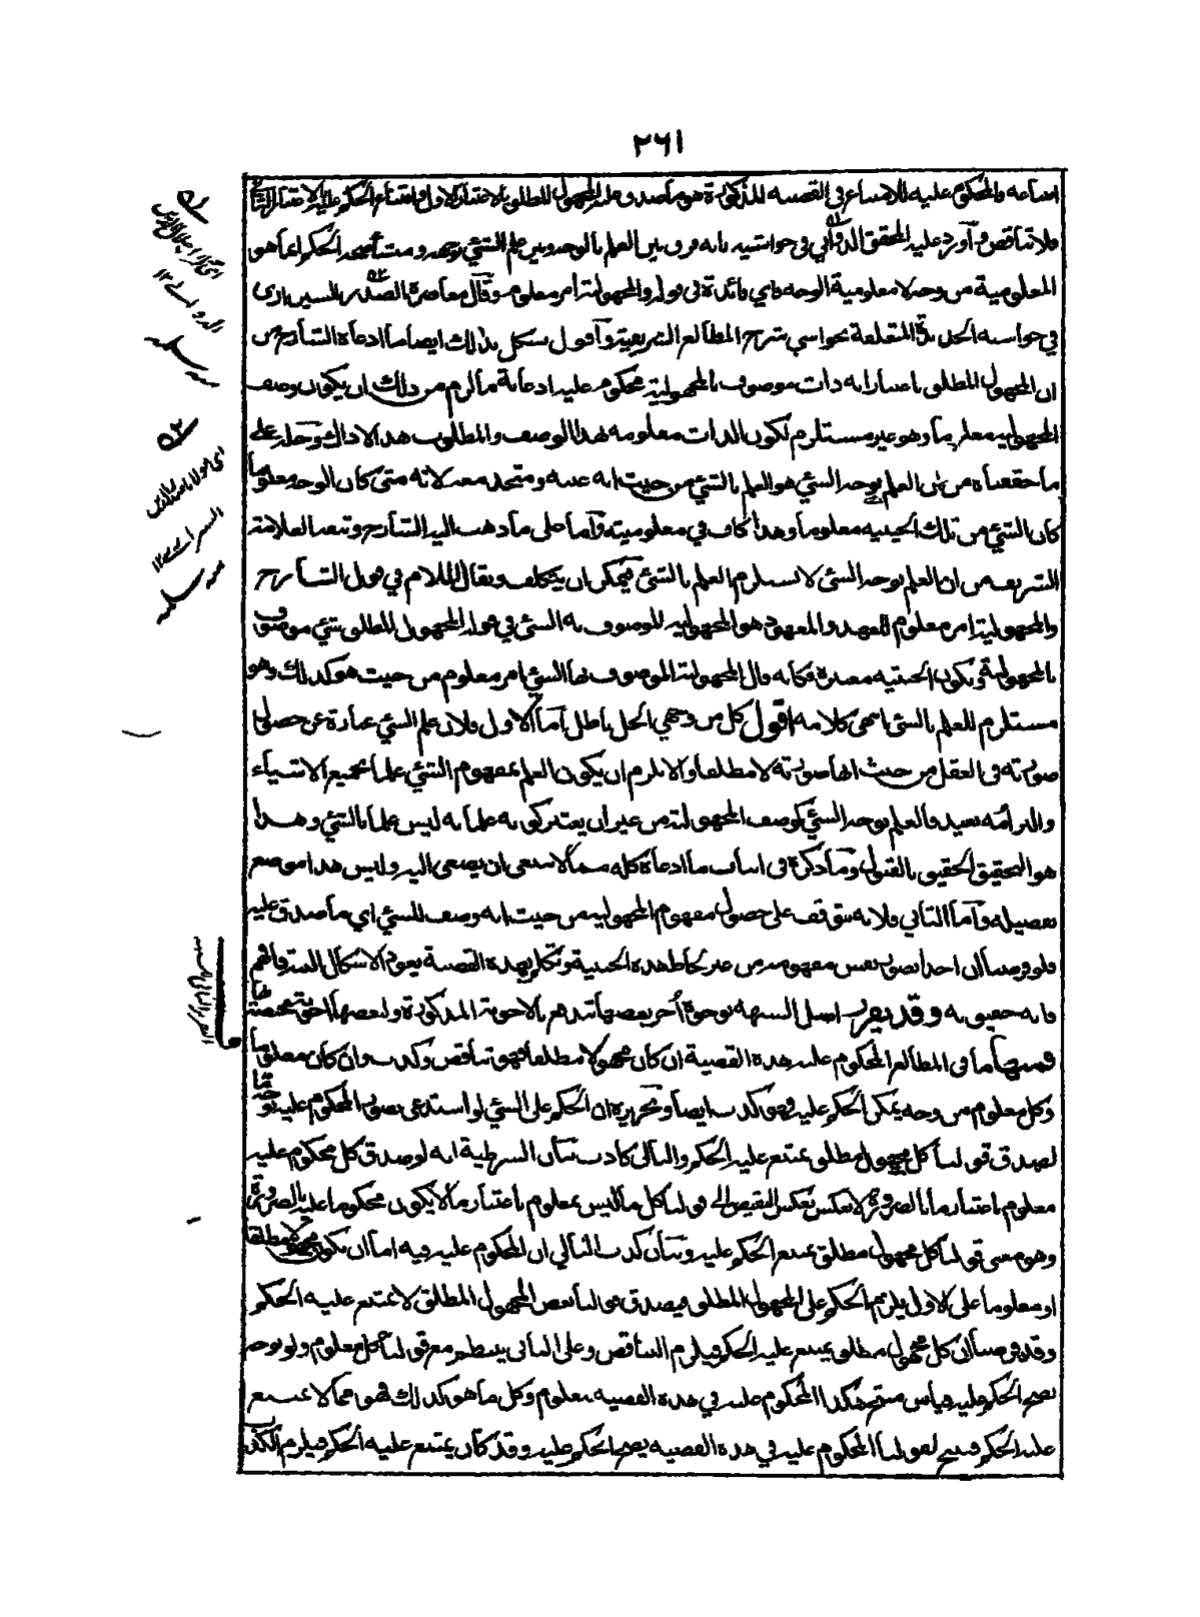 ٢٦١
والمحكوم عليه بالامتناع في القضية المذكورة هو ما صدق عليه المجهول المطلق بالاعتبار الاول وامتناع الحكم عليه بالاعتبار الثاني
فلا تناقض وآورد عليه المحقق الدواني في حواشيه بانه فرق بين العلم بالوجه وبين علم الشئ بوجهه ومنشأ صحة الحكم انما هو
المعلومية من وجه لا معلومية الوجه فاي فائدة في قوله والمجهولية امر معلوم وقال معاصره الصدر الشيرازي
في حواشيه الجديدة المتعلقة بحواشي شرح المطالع الشريفية وآقول يشكل بذلك ايضا ما ادعاه الشارح من
ان المجهول المطلق باعتبار انه ذات موصوف بالمجهولية محكوم عليه اذ غاية ما لزم من ذلك ان يكون وصف
المجهولية معلوما وهو غير مستلزم لكون الذات معلومة بهذا الوصف والمطلوب هذا لا ذاك وحله على
ما حققناه من ان العلم بوجه الشئ هو العلم بالشئ من حيث انه عينه ومتحد معه لانه متى كان الوجه معلوما
كان الشئ من تلك الحيثية معلوما وهذا كاف في معلوميته وآما على ما ذهب اليه الشارح وتبعه العلامة
الشريف من ان العلم بوجه الشئ لا يستلزم العلم بالشئ فيمكن ان يتكلف ويقال اللام في قول الشارح
والمجهولية امر معلوم للعهد والمعهود هو المجهولية الموصوف به الشئ في قوله المجهول المطلق شئ موصوف
بالمجهولية وتكون الحيثية معتبرة فكانه قال المجهولية الموصوف بها الشئ امر معلوم من حيث هو كذلك وهو
مستلزم للعلم بالشئ انتهى كلامه اقول كل من وجهي الحل باطل اما الاول فلان علم الشئ عبارة عن حصول
صورته في العقل من حيث انها صورته لا مطلقا والا لزم ان يكون العلم بمفهوم الشئ علما بجميع الاشياء
والتزامه بعيد والعلم بوجه الشئ كوصف المجهولية من غير ان يعتبر كونه علما به ليس علما بالشئ وهذا
هو التحقيق الحقيق بالقبول وما ذكره في اثبات ما ادعاه كله مما لا ينبغي ان يصغى اليه وليس هذا موضع
تفصيله وآما الثاني فلانه يتوقف على حصول مفهوم المجهولية من حيث انه وصف للشئ اي ما صدق عليه
فلو فرضنا ان احدا تصور نفس مفهومه من غير لحاظ هذه الحيثية وتكلم بهذه القضية يعود الاشكال البتة فافهم
فانه حقيق به وقد يقرر اصل الشبهة بوجوه أخر بعضها تندفع بالاجوبة المذكورة وبعضها
فمنها ما في المطالع المحكوم عليه في هذه القضية ان كان مجهولا مطلقا فهو تناقض وكذب وان كان معلوما
وكل معلوم من وجه يمكن الحكم عليه فهو كذب ايضا وتحريره ان الحكم على الشئ لو استدعى تصور المحكوم عليه بوجه ما
لصدق قولنا كل مجهول مطلق يمتنع عليه الحكم والتالي كاذب بيان الشرطية انه لو صدق كل محكوم عليه
معلوم باعتبار ما بالضرورة لانعكس بعكس النقيض الى قولنا كل ما ليس بمعلوم باعتبار ما لا يكون محكوما عليه بالضرورة
وهو معنى قولنا كل مجهول مطلق يمتنع الحكم عليه وبيان كذب التالي ان المحكوم عليه فيه اما ان يكون مجهولا مطلقا
او معلوما على الاول يلزم الحكم على المجهول المطلق فيصدق قولنا بعض المجهول المطلق لا يمتنع عليه الحكم
وقد فرضنا ان كل مجهول مطلق يمتنع عليه الحكم فيلزم التناقض وعلى الثاني ينتظم مع قولنا كل معلوم ولو بوجه
يصح الحكم عليه قياس منتج هكذا المحكوم عليه في هذه القضية معلوم وكل ما هو كذلك فهو مما لا يمتنع
عليه الحكم فينتج لقولنا المحكوم عليه في هذه القضية يصح الحكم عليه وقد كان يمتنع عليه الحكم فيلزم الكذب